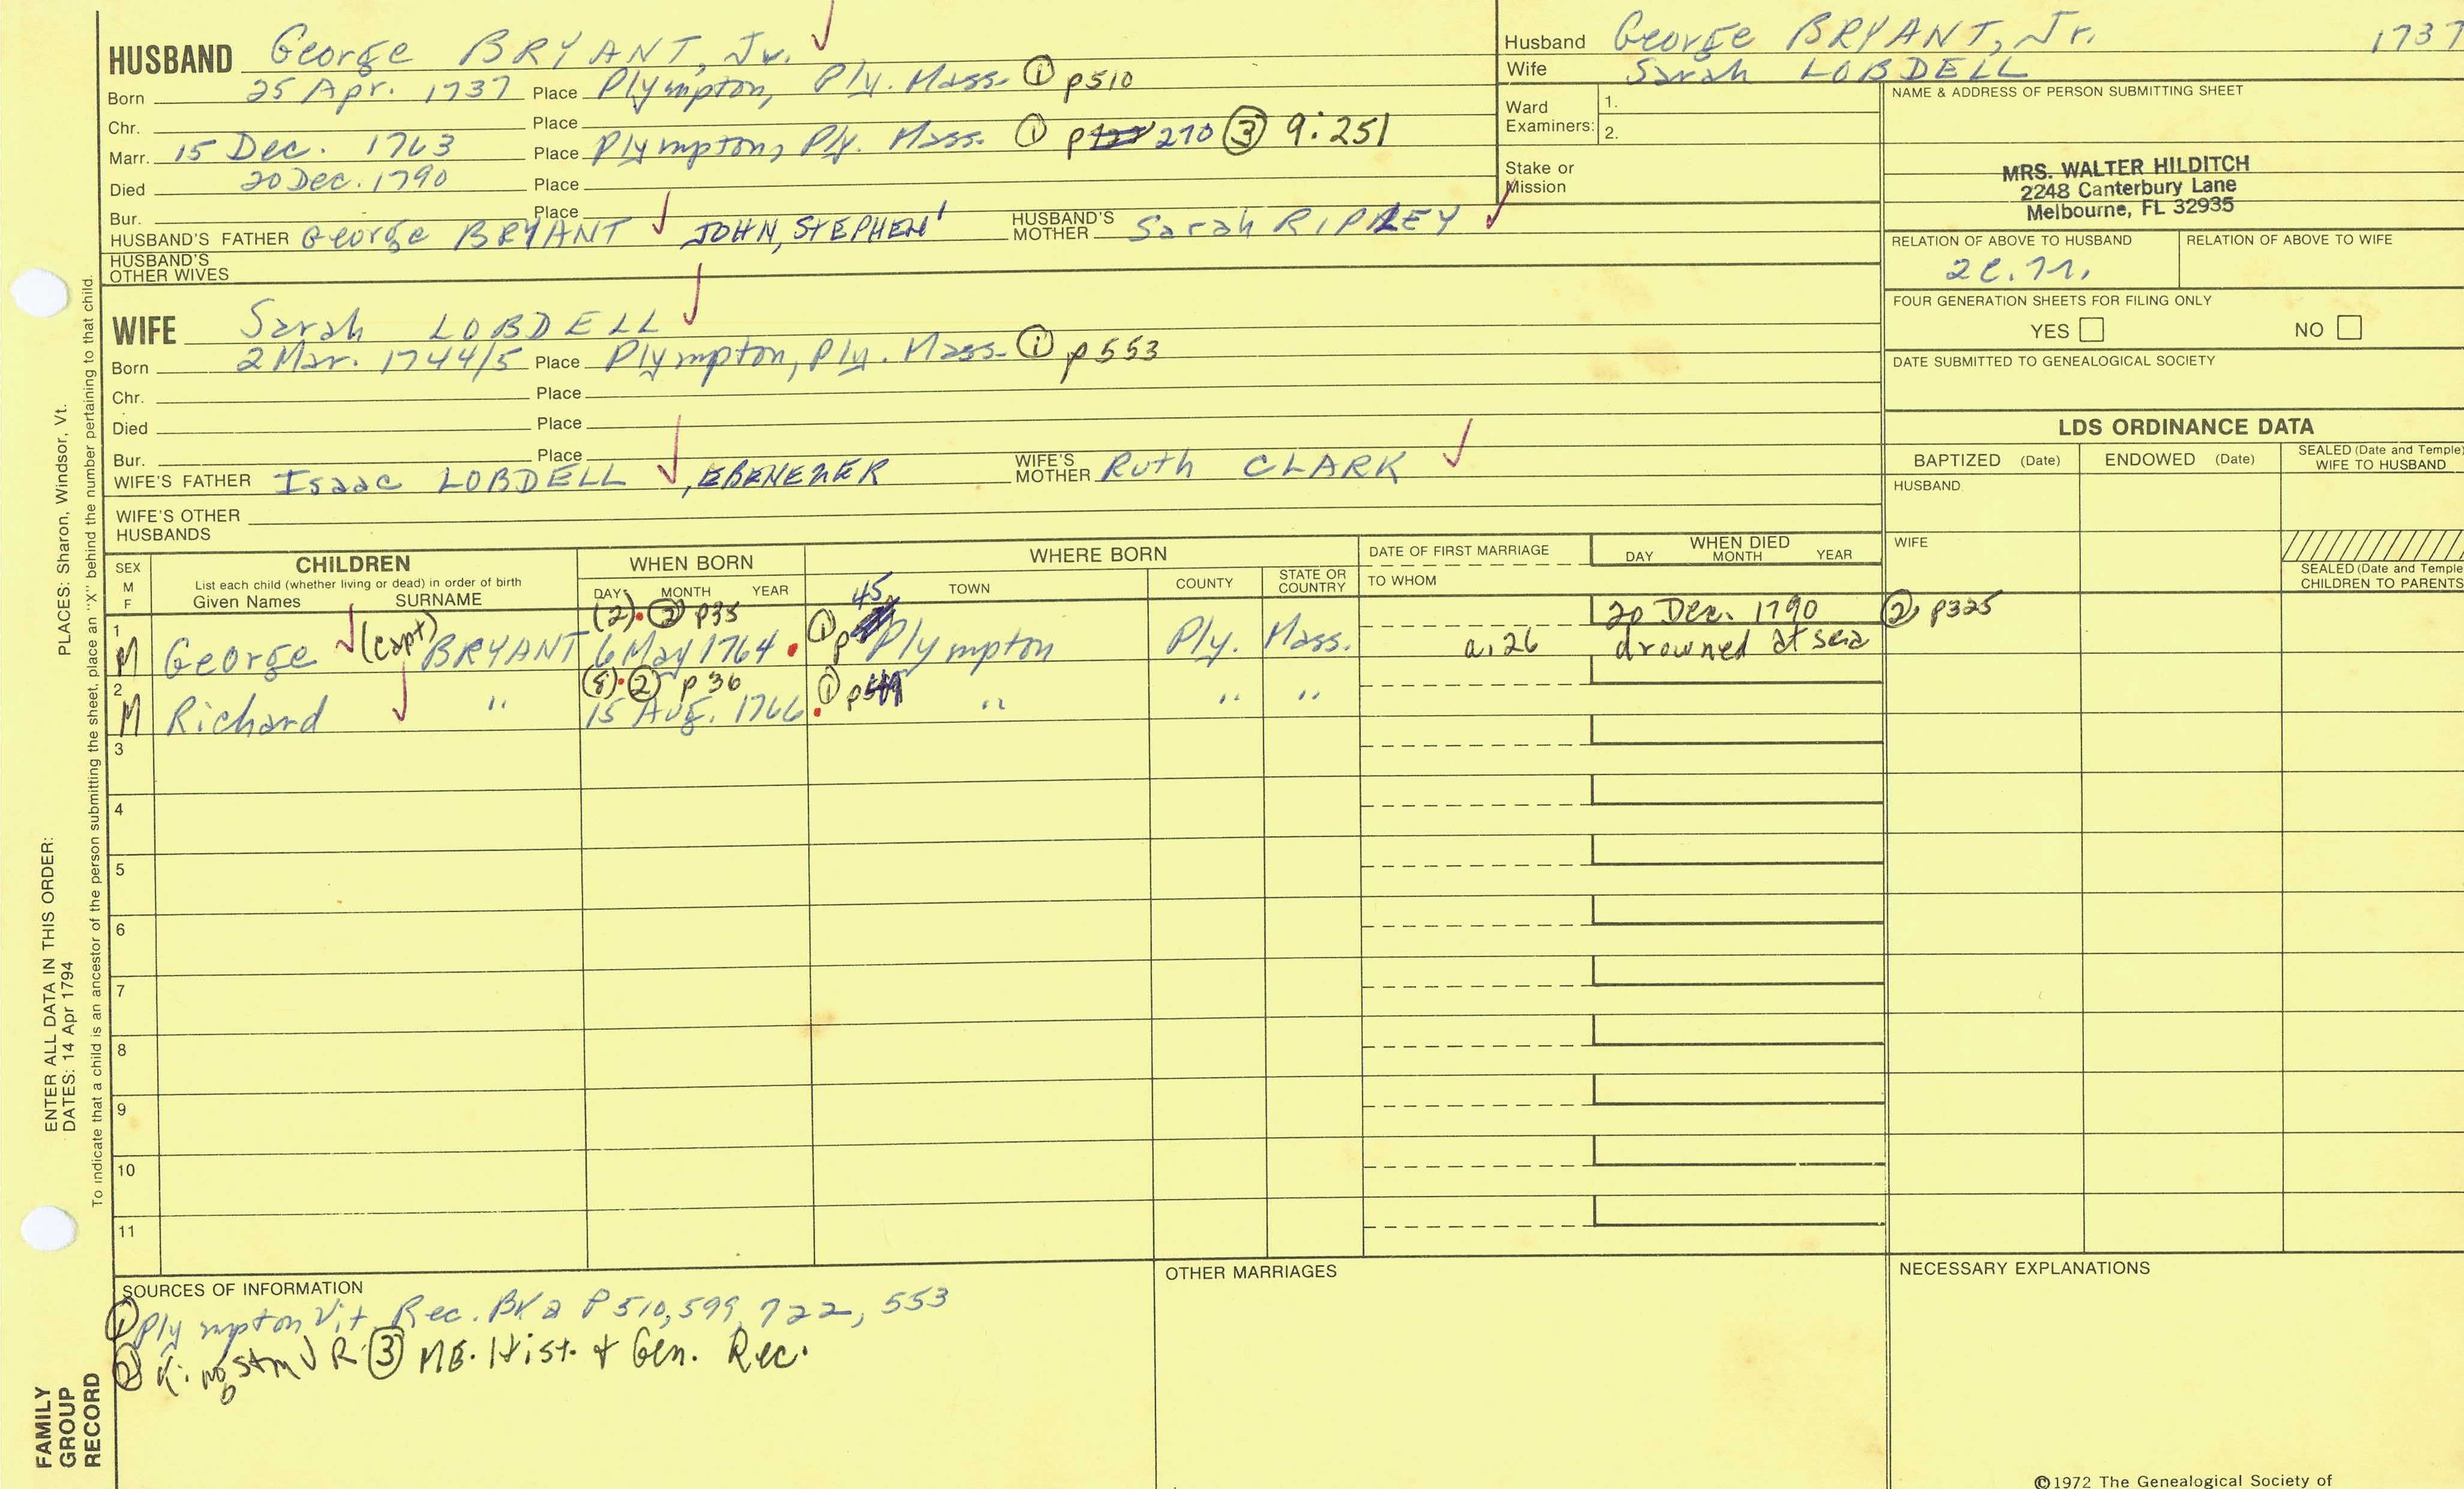 HUSBAND George BRYANT, Jr.
Born 25 Apr. 1737 Place Plympton, Ply. Mass. ① p510
Chr. Place
Marr. 15 Dec. 1763 Place Plympton, Ply. Mass. ① p 270 ③ 9:251
Died 20 Dec. 1790 Place
Bur. Place
HUSBAND'S FATHER George BRYANT JOHN, STEPHEN' HUSBAND'S MOTHER Sarah RIPLEY
HUSBAND'S OTHER WIVES
WIFE Sarah LOBDELL
Born 2 Mar. 1744/5 Place Plympton, Ply. Mass. ① p553
Chr. Place
Died Place
Bur. Place
WIFE'S FATHER Isaac LOBDELL, EBENEZER WIFE'S MOTHER Ruth CLARK
WIFE'S OTHER HUSBANDS
Husband George BRYANT, Jr. 1737
Wife Sarah LOBDELL
Ward Examiners: 1.
2.
Stake or Mission
NAME & ADDRESS OF PERSON SUBMITTING SHEET
MRS. WALTER HILDITCH
2248 Canterbury Lane
Melbourne, FL 32935
RELATION OF ABOVE TO HUSBAND RELATION OF ABOVE TO WIFE
FOUR GENERATION SHEETS FOR FILING ONLY
YES NO
DATE SUBMITTED TO GENEALOGICAL SOCIETY
LDS ORDINANCE DATA
BAPTIZED (Date) ENDOWED (Date) SEALED (Date and Temple) WIFE TO HUSBAND
HUSBAND
WIFE
SEALED (Date and Temple
CHILDREN TO PARENTS
SEX M F CHILDREN WHEN BORN WHERE BORN DATE OF FIRST MARRIAGE WHEN DIED
List each child (whether living or dead) in order of birth
Given Names SURNAME DAY MONTH YEAR TOWN COUNTY STATE OR COUNTRY TO WHOM DAY MONTH YEAR
(2) ② p35 45 20 Dec. 1790 ② p325
1 M George (capt) BRYANT 6 May 1764 ① p Plympton Ply. Mass. a. 26 drowned at sea
(8) ② p 36 ① p
2 M Richard " 15 Aug. 1766 " " "
3
4
5
6
7
8
9
10
11
SOURCES OF INFORMATION
① Plympton Vit. Rec. Bk 2 P 510, 599, 722, 553
② Kingston VR ③ ME. Hist. & Gen. Rec.
OTHER MARRIAGES
NECESSARY EXPLANATIONS
©1972 The Genealogical Society of
ENTER ALL DATA IN THIS ORDER:
DATES: 14 Apr 1794 PLACES: Sharon, Windsor, Vt.
To indicate that a child is an ancestor of the person submitting the sheet, place an "X" behind the number pertaining to that child.
FAMILY
GROUP
RECORD